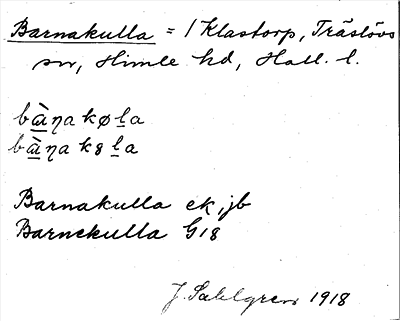 Barnakulla = / Klastorp, Träslövs
sn, Himle hd, Hall. l.
bàṇakøḻa
bàṇak8ḻa
Barnakulla ek, jb
Barnekulla G18
J. Sahlgren 1918